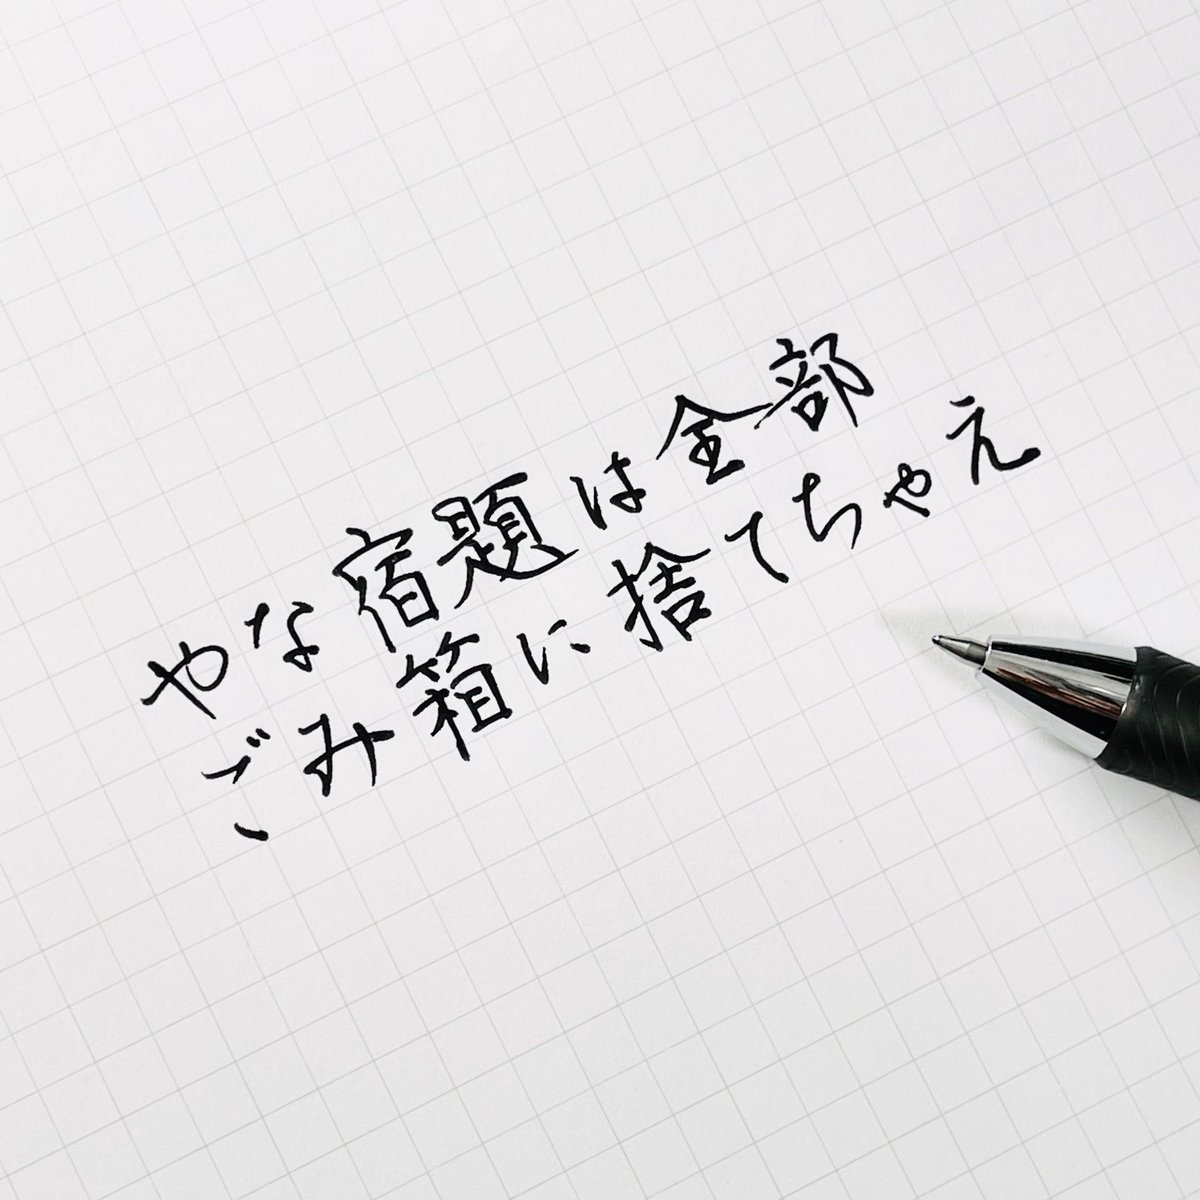 やな宿題は全部
ごみ箱に捨てちゃえ